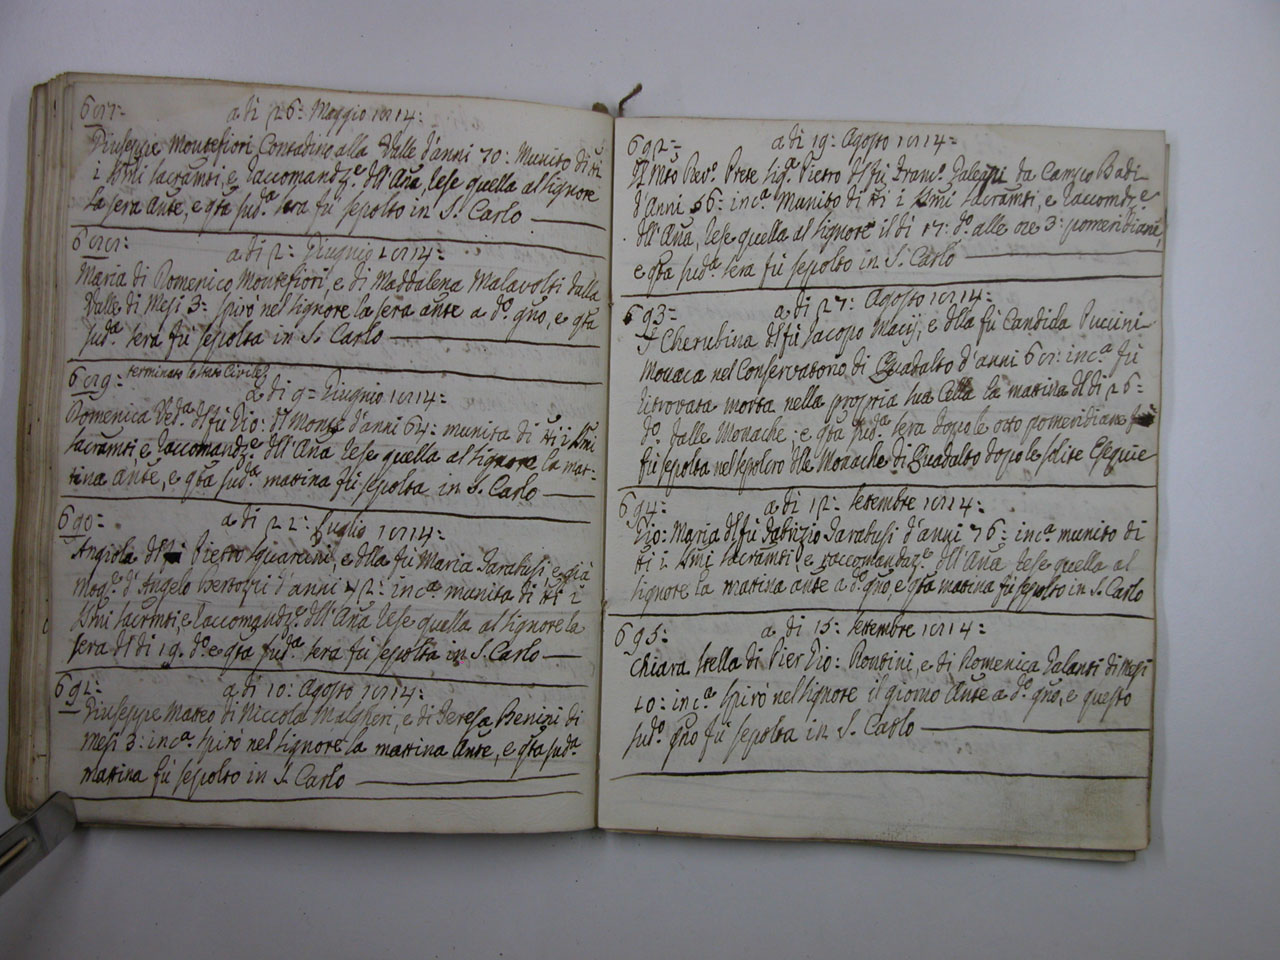 687=
a dì 26= Maggio 1814=
Giuseppe Montefiori Contadino alla Valle d'anni 70: Munito di tti
i SSmi Sacramti, e Raccomandze dell'Aña, rese quella al Signore
la sera ante, e qta suda sera fù sepolto in S. Carlo
688=
a dì 2= Giugnio 1814=
Maria di Domenico Montefiori, e di Maddalena Malavolti dalla
Valle di Mesi 3= spirò nel Signore la sera ante a do gno, e qta
suda sera fù sepolta in S. Carlo
689= terminato lo Stato Civile
a dì 9= Giugnio 1814=
Domenica Veda del fù Gio: del Monte d'anni 64= munita di tti i SSmi
Sacramti e Raccomandze dell'Aña rese quella al Signore la mat-
tina ante, e qta suda mattina fù sepolta in S. Carlo
690=
a dì 22= Luglio 1814=
Angiola di Pietro Squarcini, e della fù Maria Tarabusi, e già
mogle d'Angelo Bertozzi d'anni 42= inca munita di tti i
SSmi Sacramti, e Raccomandze dell'Aña rese quella al Signore la
sera del dì 19. do e qta suda sera fù sepolta in S. Carlo
691=
a dì 10= Agosto 1814=
Giuseppe Matteo di Niccola Malgheri, e di Teresa Benini di
mesi 3= inca spirò nel Signore la mattina ante, e qta suda
mattina fù sepolto in S. Carlo
692=
a dì 19= Agosto 1814=
Il Mto Revo Prete Sige Pietro del fù Franco Galeani da Campo Badi
d'Anni 56= inca Munito di tti i SSmi Sacramti, e Raccomdze
dell'Aña, rese quella al Signore il dì 17= do alle ore 3= pomeridiane,
e qta suda sera fù sepolto in S. Carlo
693=
a dì 27= Agosto 1814=
Sr Cherubina del fù Iacopo Macij, e della fù Candida Puccini
Monaca nel Conservatorio di Quadalto d'anni 68= inca fù
ritrovata morta nella propria sua Cella la mattina del dì 26=
do dalle Monache; e qta suda sera dopo le otto pomeridiane
fù sepolta nel sepolcro delle Monache di Quadalto dopo le solite Esequie
694=
a dì 12= Settembre 1814=
Gio: Maria del fù Fabrizio Tarabusi d'anni 76= inca munito di
tti i SSmi Sacramti, e raccomandze dell'Aña rese quella al
Signore la mattina ante a do gno, e qta mattina fù sepolto in S. Carlo
695=
a dì 15= Settembre 1814=
Chiara Stella di Pier Gio: Rontini, e di Domenica Galanti di Mesi
10= inca spirò nel Signore il giorno Ante a do gno, e questo
sudo gno fù sepolta in S. Carlo